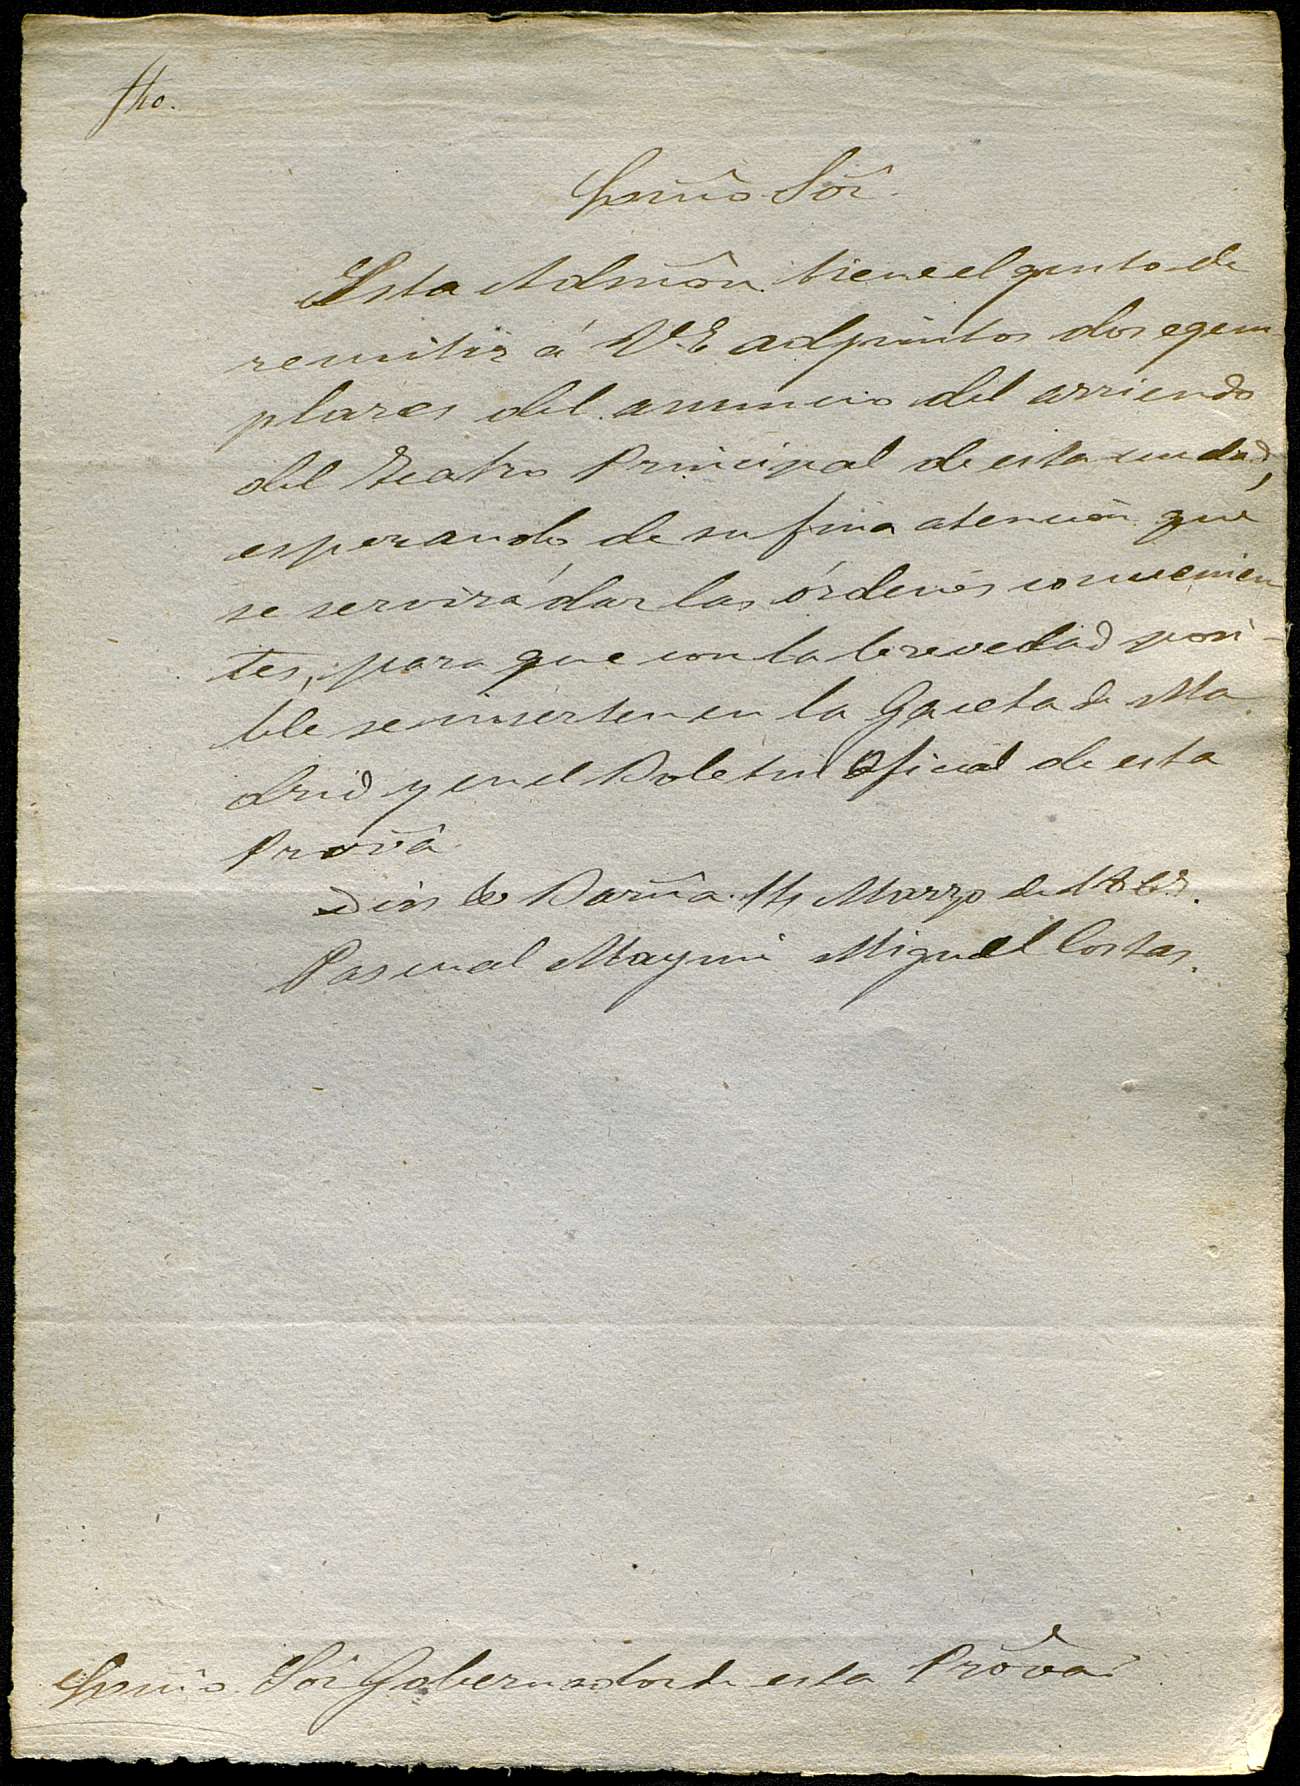 fho.
Exmo Sôr.
Esta Admôn tiene el gusto de
remitir á V.E adjuntos dos egem
plares del anuncio del arriendo
del Teatro Principal de esta ciudad,
esperando de su fina atención que
se servirá dar las órdenes convenien
tes, para que con la brevedad posi-
ble se inserten en la Gaceta de Ma
drid y en el Boletin Oficial de esta
Provâ.
Dios &. Barña. 14 Marzo de
Pascual Maymi Miguel Costas.
Exmo Sôr Gobernador de esta Provâ